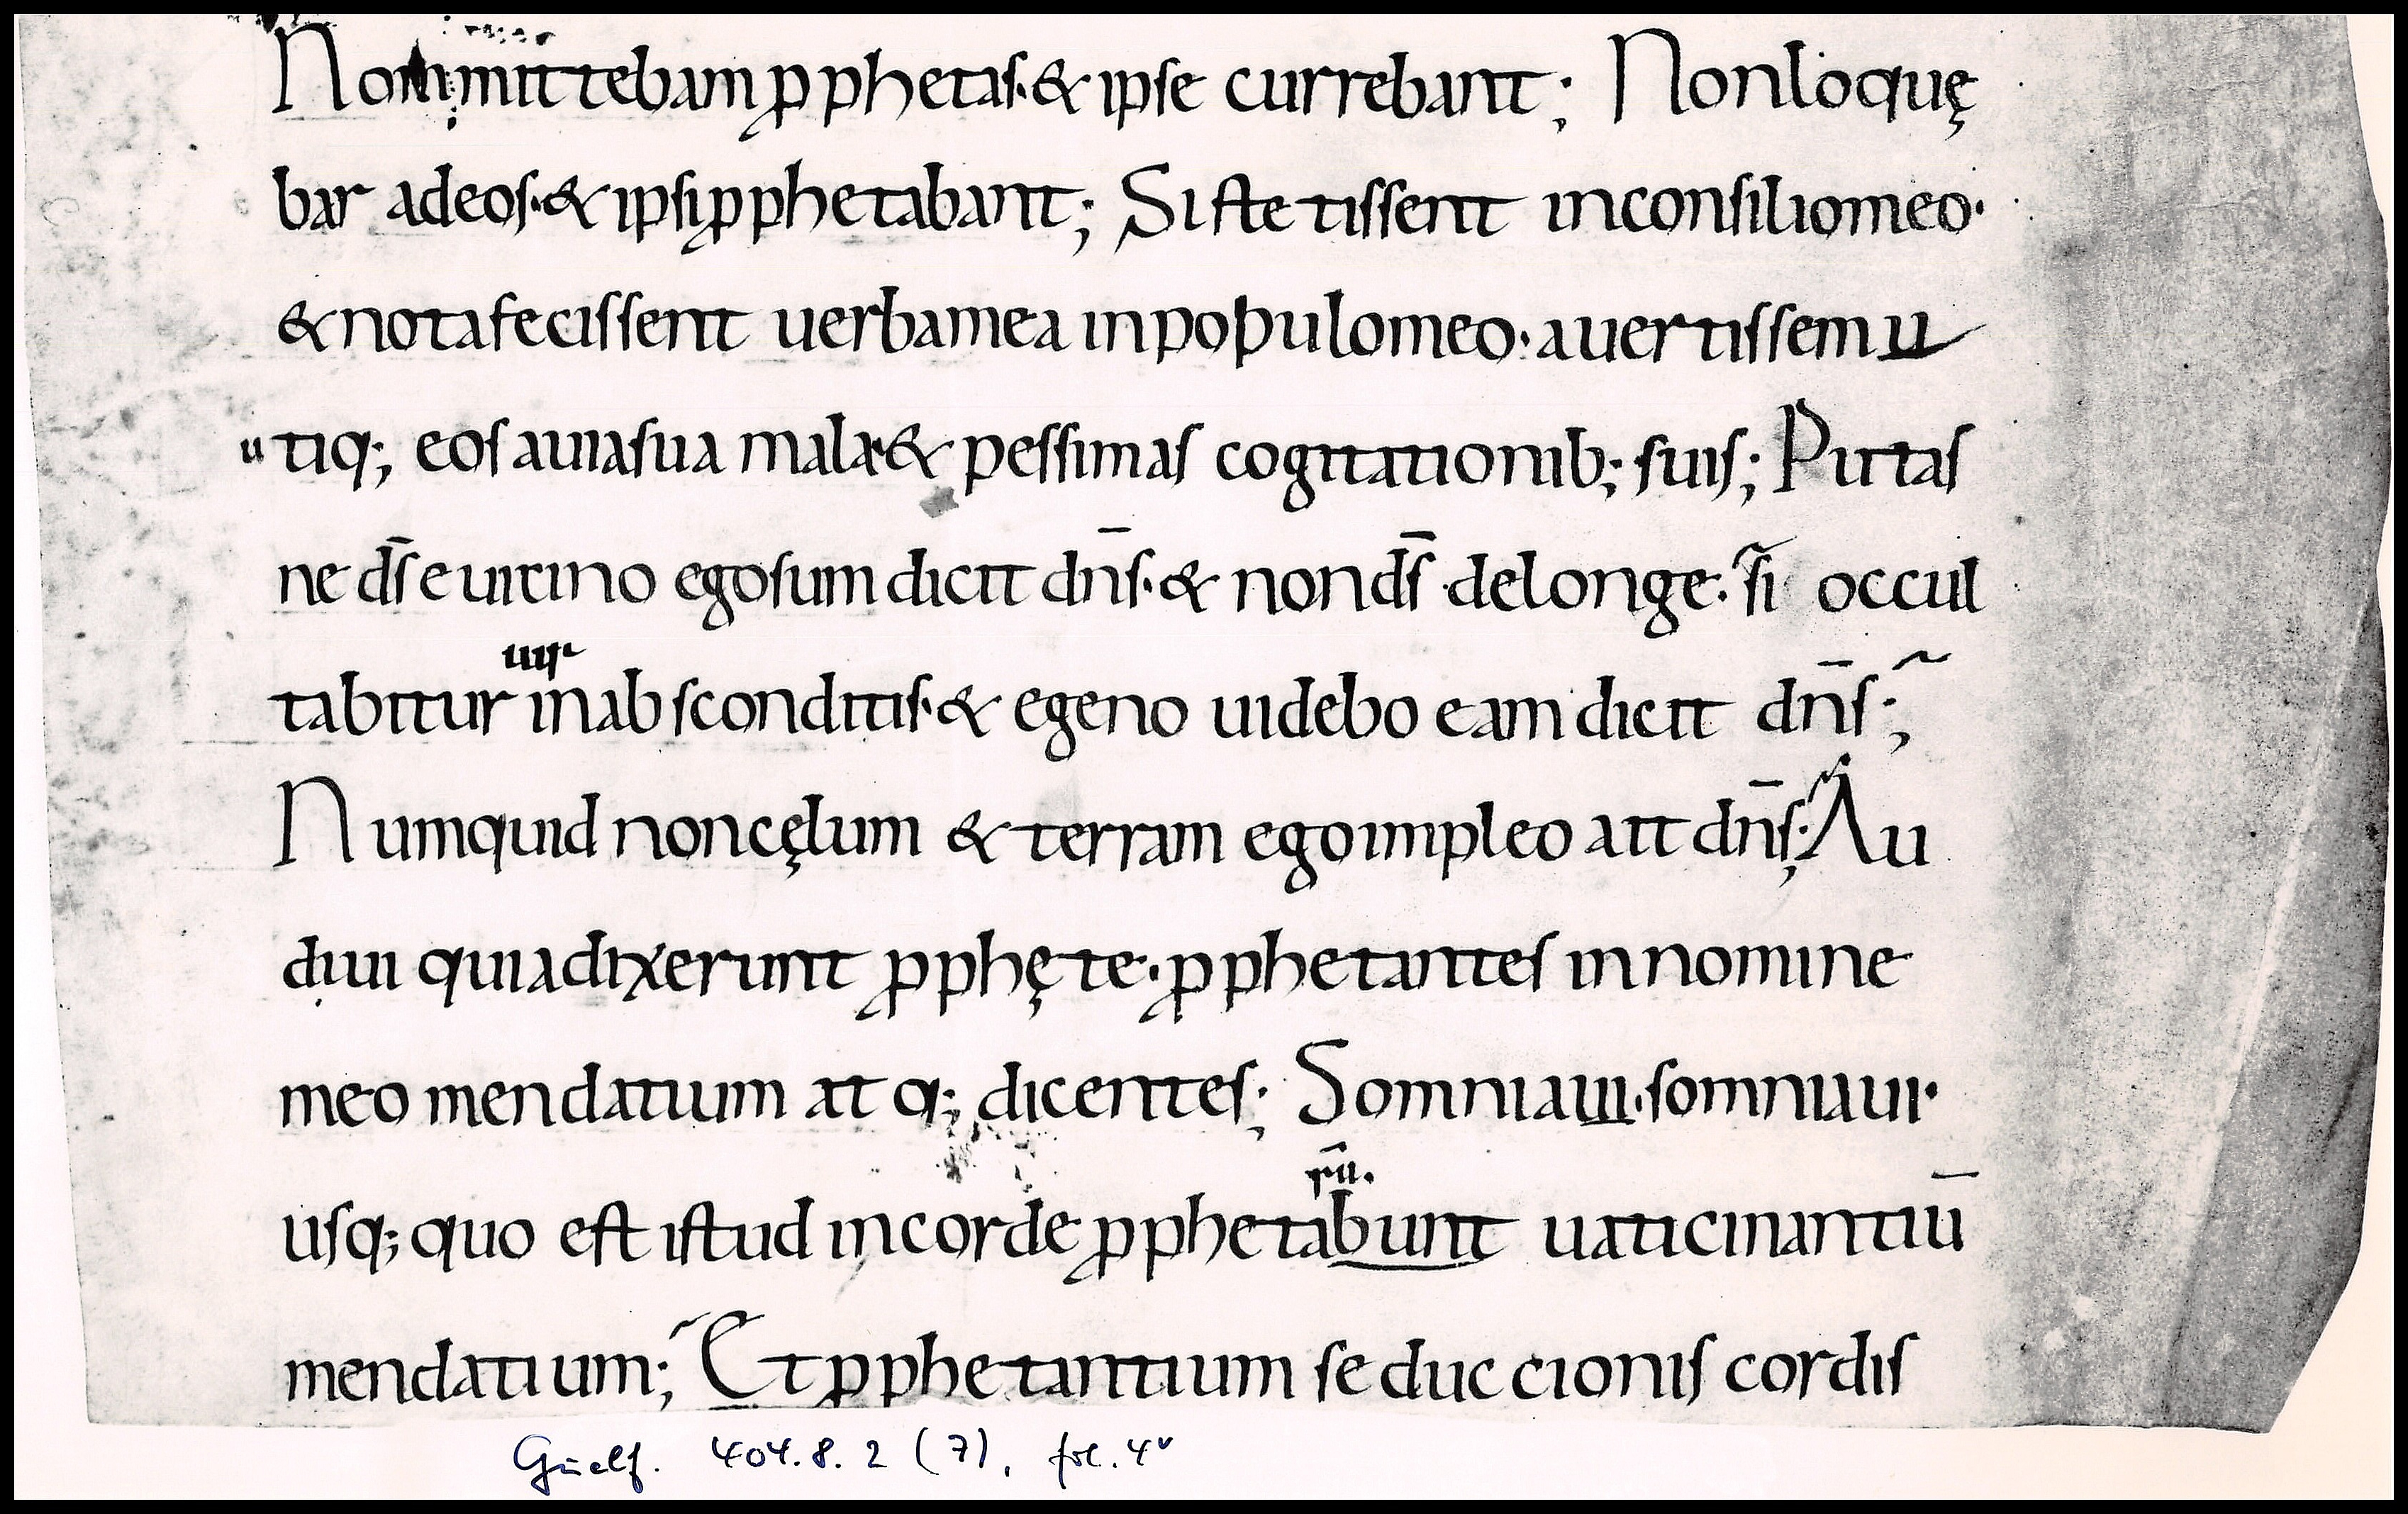 Non mittebam ꝓphetas· & ipse currebant; Non loquę
bar ad eos· & ipsi ꝓphetabant; Si stetissent in consilio meo·
& nota fecissent uerba mea in populo meo· auertissem u
u tiq; eos a uia sua mala· & pessimas cogitationib; suis; Putas
ne ds̄ e uicino ego sum dicit dn̄s· & non ds̄ de longe· si occul
tabitur uir in absconditis· & egeno uidebo eam dicit dn̄s;
Numquid non cęlum & terram ego impleo ait dn̄s; Au
diui quia dixerunt ꝓphęte· ꝓphetantes in nomine
meo mendatium atq; dicentes; Somniaui· somniaui·
usq; quo est istud in corde ꝓphetabunt rū. uaticinantiū
mendatium; Et ꝓphetantium seduccionis cordis
Guelf. 404.8.2 (7), fol. 4v